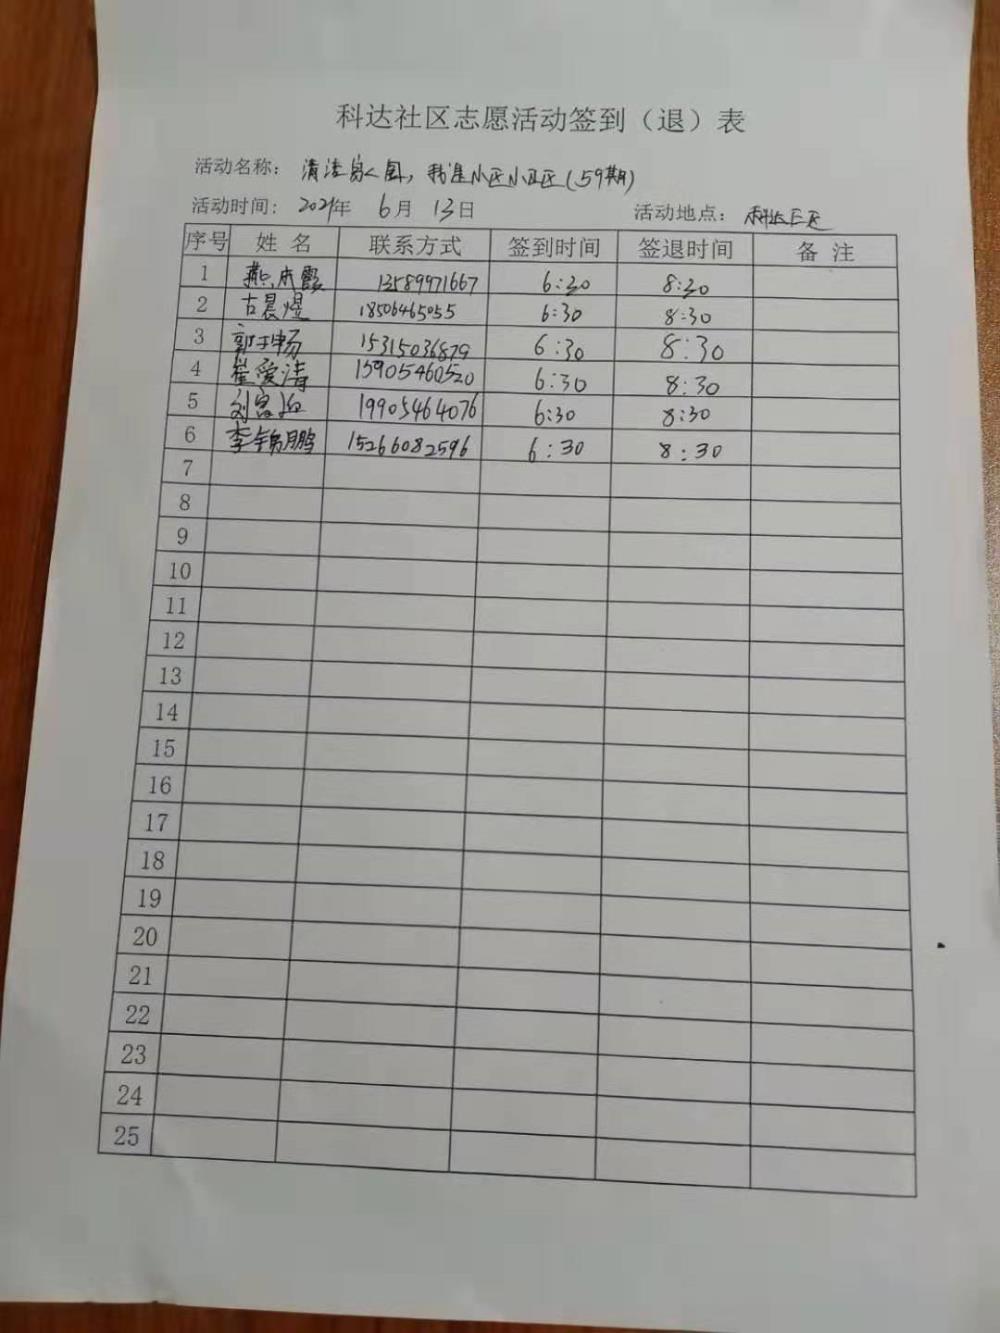 科达社区志愿活动签到（退）表
活动名称： 清洁家园，我是小区小卫士(59期)
活动时间： 2021年 6月 13日 活动地点： 科达
序号 姓名 联系方式 签到时间 签退时间 备注
1 燕 霞 13589971667 6:30 8:30
2 古晨煜 18506465055 6:30 8:30
3 郭于畅 15315036879 6:30 8:30
4 崔爱清 15905460520 6:30 8:30
5 刘 19905464076 6:30 8:30
6 李锦鹏 15266082596 6:30 8:30
7
8
9
10
11
12
13
14
15
16
17
18
19
20
21
22
23
24
25